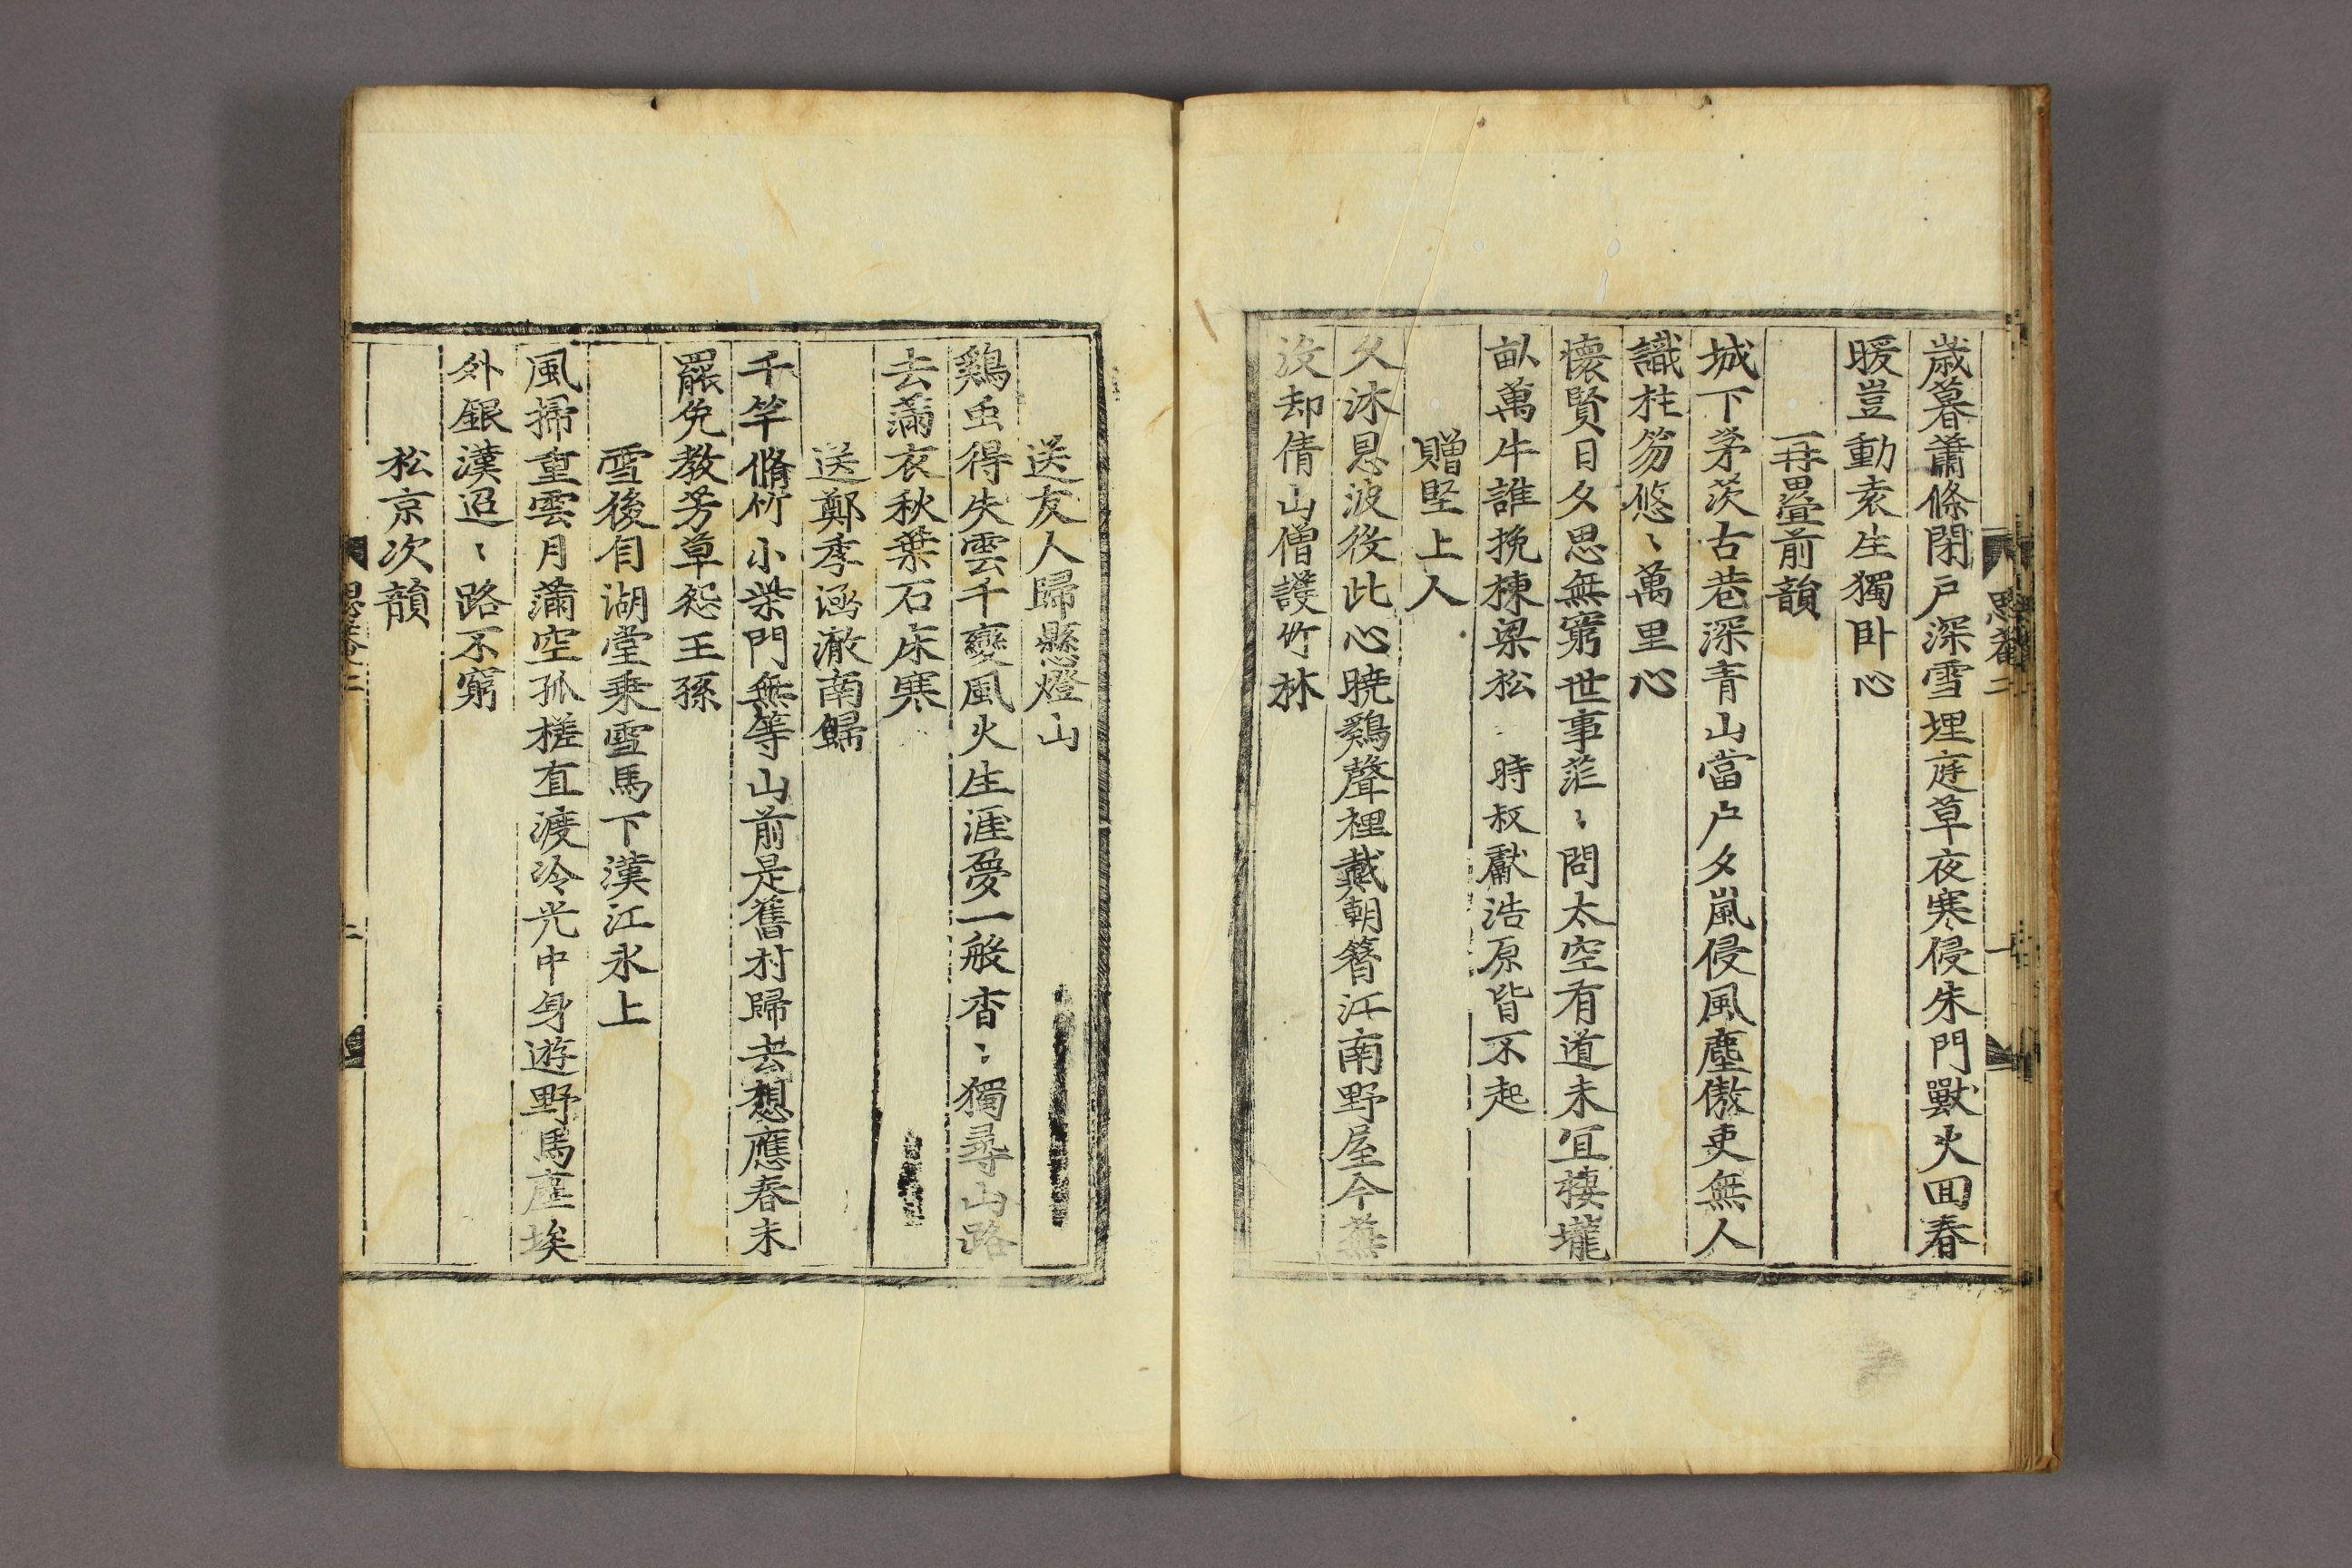 歲暮蕭條閉戶深雪埋庭草夜寒侵朱門獸火回春
暖豈動袁生獨卧心
再疊前韻
城下茅茨古巷深青山當户夕嵐侵風塵傲吏無人
識柱笏悠〻萬里心
懷賢日夕思無窮世事茫〻問太空有道未宜棲壠
畝萬牛誰挽棟梁松 時叔獻浩原皆不起
贈堅上人
久沐恩波役此心曉鷄聲裡戴朝簪江南野屋今蕪
沒却倩山僧護竹林
送友人歸懸燈山
鷄虫得失雲千變風火生涯夢一般杳〻獨尋山路
去滿衣秋葉石床寒
送鄭季涵澈南歸
千竿脩竹小柴門無等山前是舊村歸去想應春未
罷免教芳草怨王孫
雪後自湖堂乘雪馬下漢江氷上
風掃重雲月滿空孤槎直渡冷光中身遊野馬塵埃
外銀漢迢〻路不窮
松京次韻